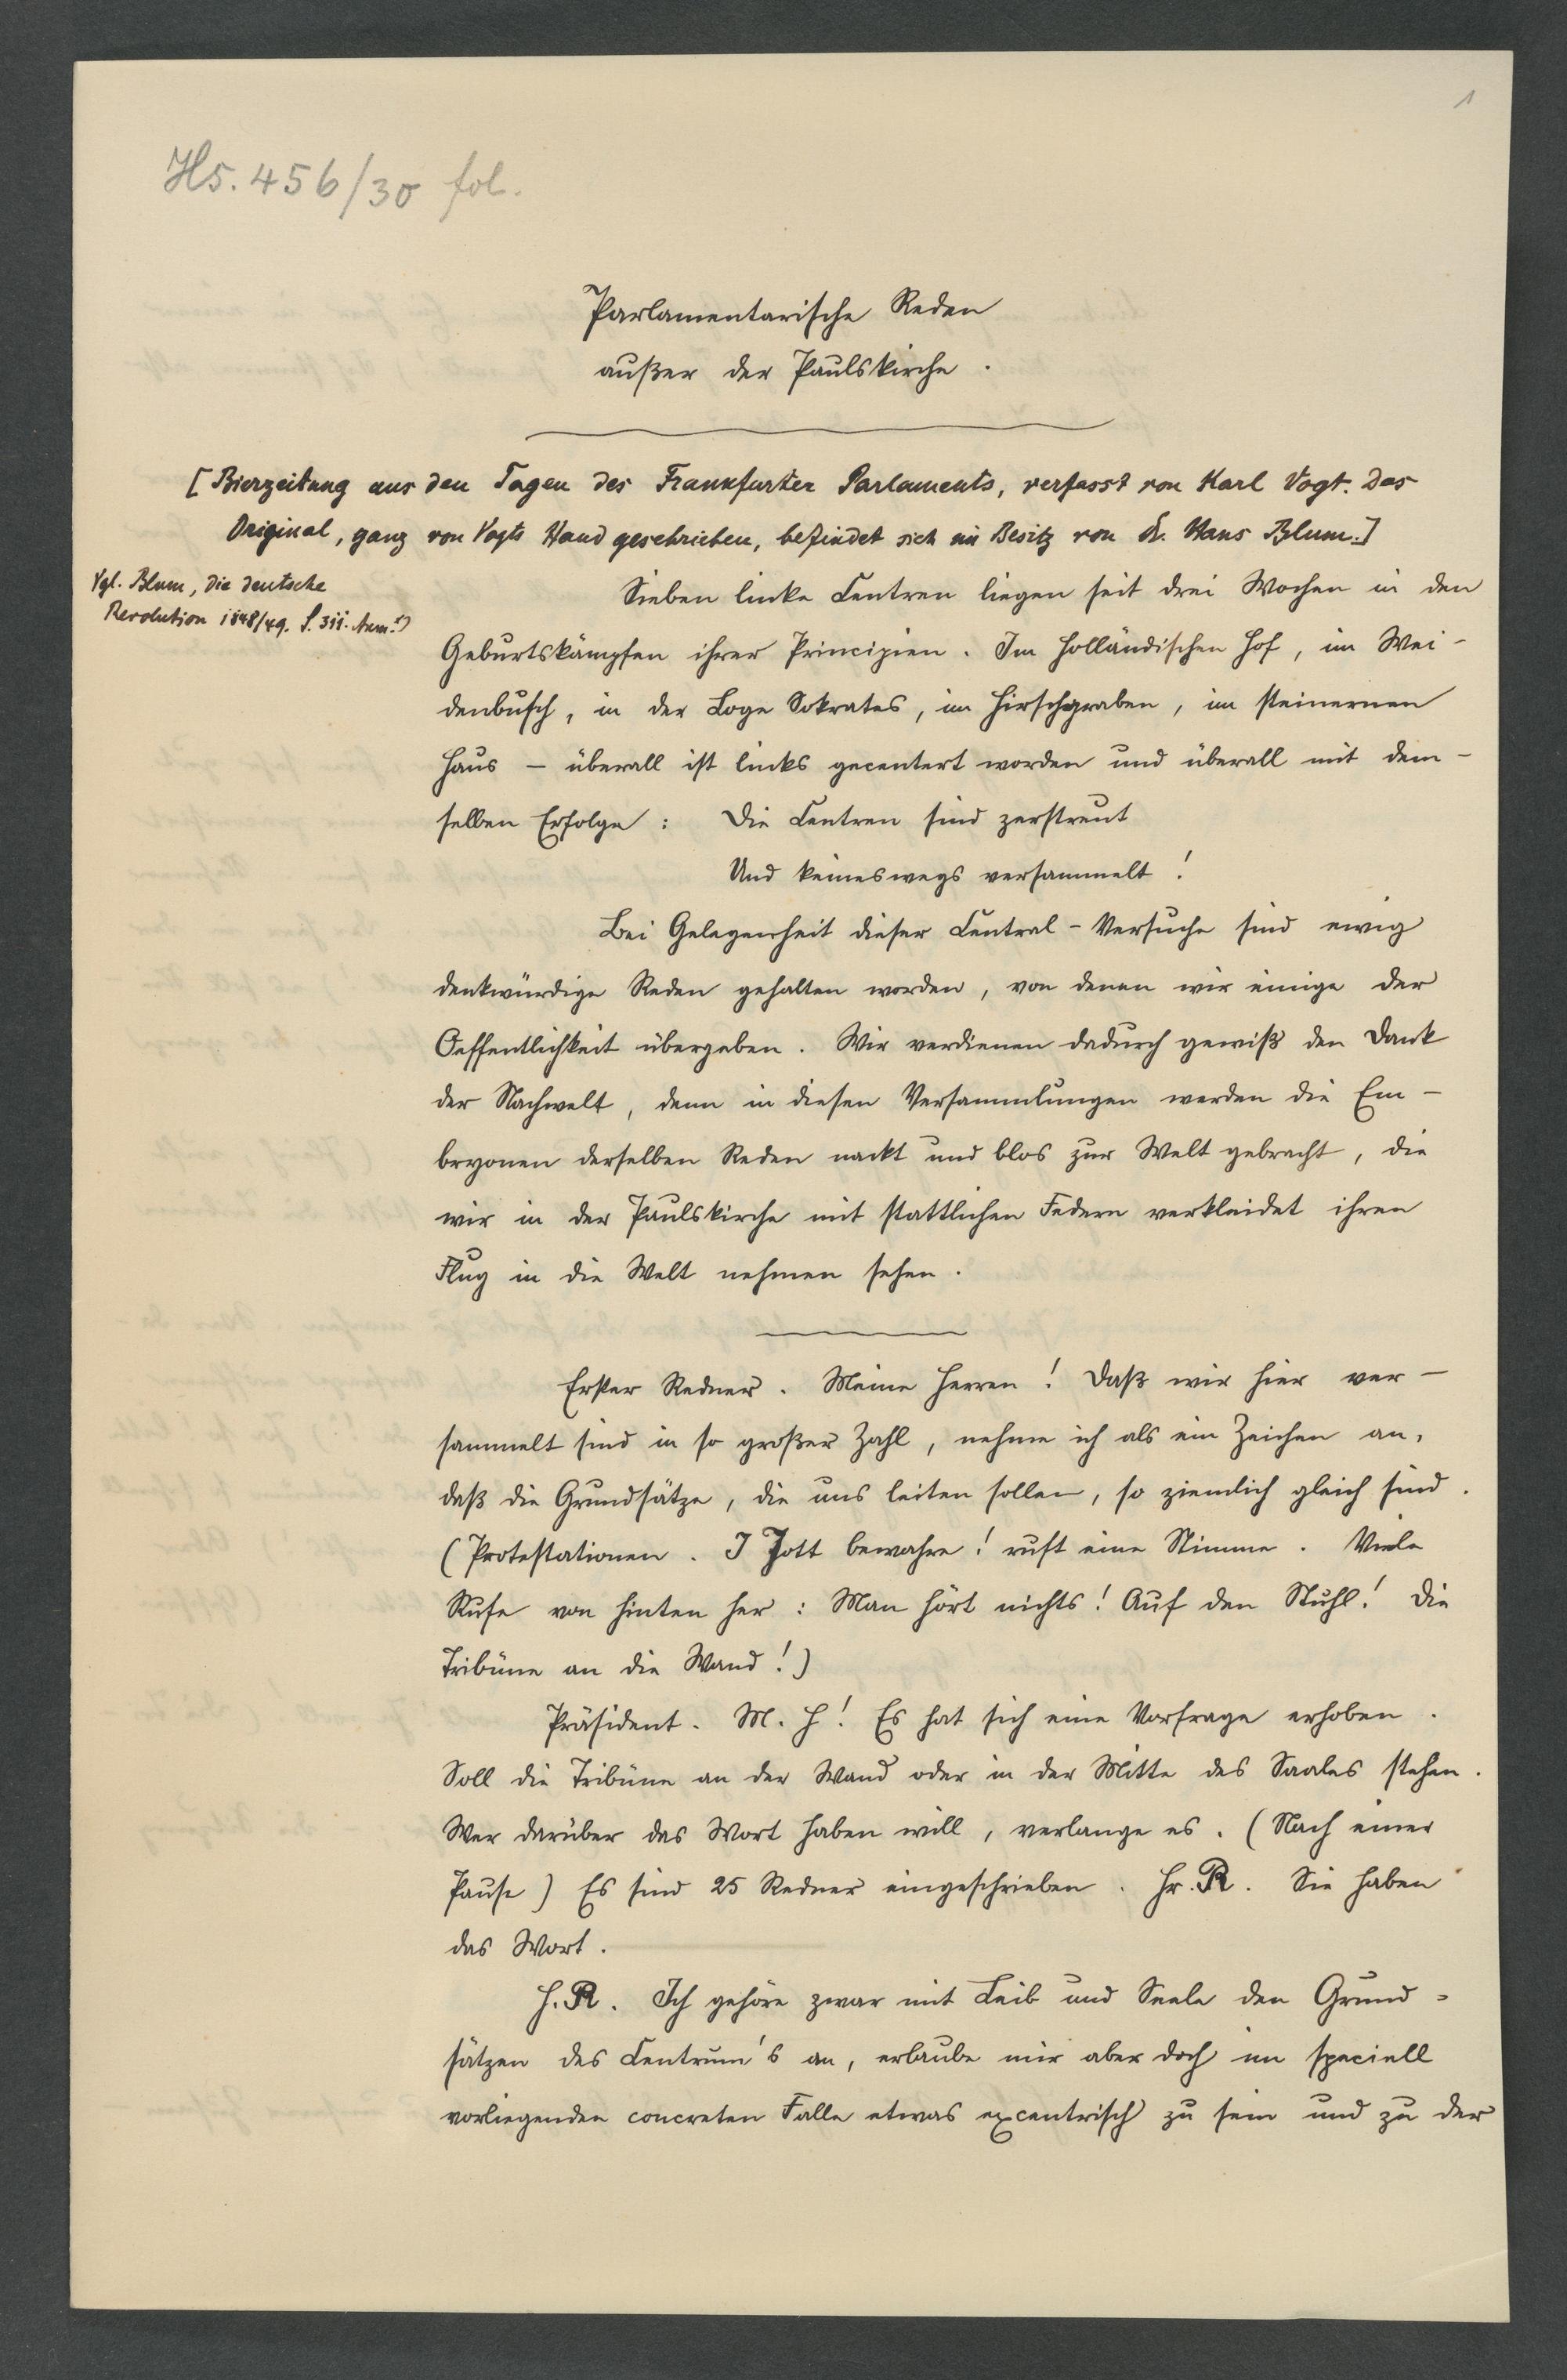 1
Hs. 456/30 fol.
Parlamentarische Reden
außer der Paulskirche.
[Bierzeitung aus den Tagen des Frankfurter Parlaments, verfasst von Karl Vogt. Das
Original, ganz von Vogts Hand geschrieben, befindet sich im Besitz von Dr. Hans Blum.]
Vgl. Blum, die deutsche
Revolution 1848/49. S. 311. Anm.)
Sieben linke Centren liegen seit drei Wochen in den
Geburtskämpfen ihrer Principien. Im holländischen Hof, im Wei-
denbusch, in der Loge Sokrates, im Hirschgraben, im steinernen
Haus – überall ist links gecentert worden und überall mit dem-
selben Erfolge: Die Centren sind zerstreut
Und keineswegs versammelt!
Bei Gelegenheit dieser Central-Versuche sind ewig
denkwürdige Reden gehalten worden, von denen wir einige der
Oeffentlichkeit übergeben. Wir verdienen dadurch gewiß den Dank
der Nachwelt, denn in diesen Versammlungen werden die Em-
bryonen derselben Reden nackt und blos zur Welt gebracht, die
wir in der Paulskirche mit stattlichen Federn verkleidet ihren
Flug in die Welt nehmen sehen.
Erster Redner. Meine Herren! Daß wir hier ver-
sammelt sind in so großer Zahl, nehme ich als ein Zeichen an,
daß die Grundsätze, die uns leiten sollen, so ziemlich gleich sind.
(Protestationen. I Jott bewahre! ruft eine Stimme. Viele
Rufe von hinten her: Man hört nichts! Auf den Stuhl! Die
Tribüne an die Wand!)
Präsident. M. H! Es hat sich eine Vorfrage erhoben.
Soll die Tribüne an der Wand oder in der Mitte des Saales stehen.
Wer darüber das Wort haben will, verlange es. (Nach einer
Pause) Es sind 25 Redner eingeschrieben. Hr. R. Sie haben
das Wort.
H. R. Ich gehöre zwar mit Leib und Seele den Grund-
sätzen des Centrum's an, erlaube mir aber doch im speciell
vorliegenden concreten Falle etwas excentrisch zu sein und zu der